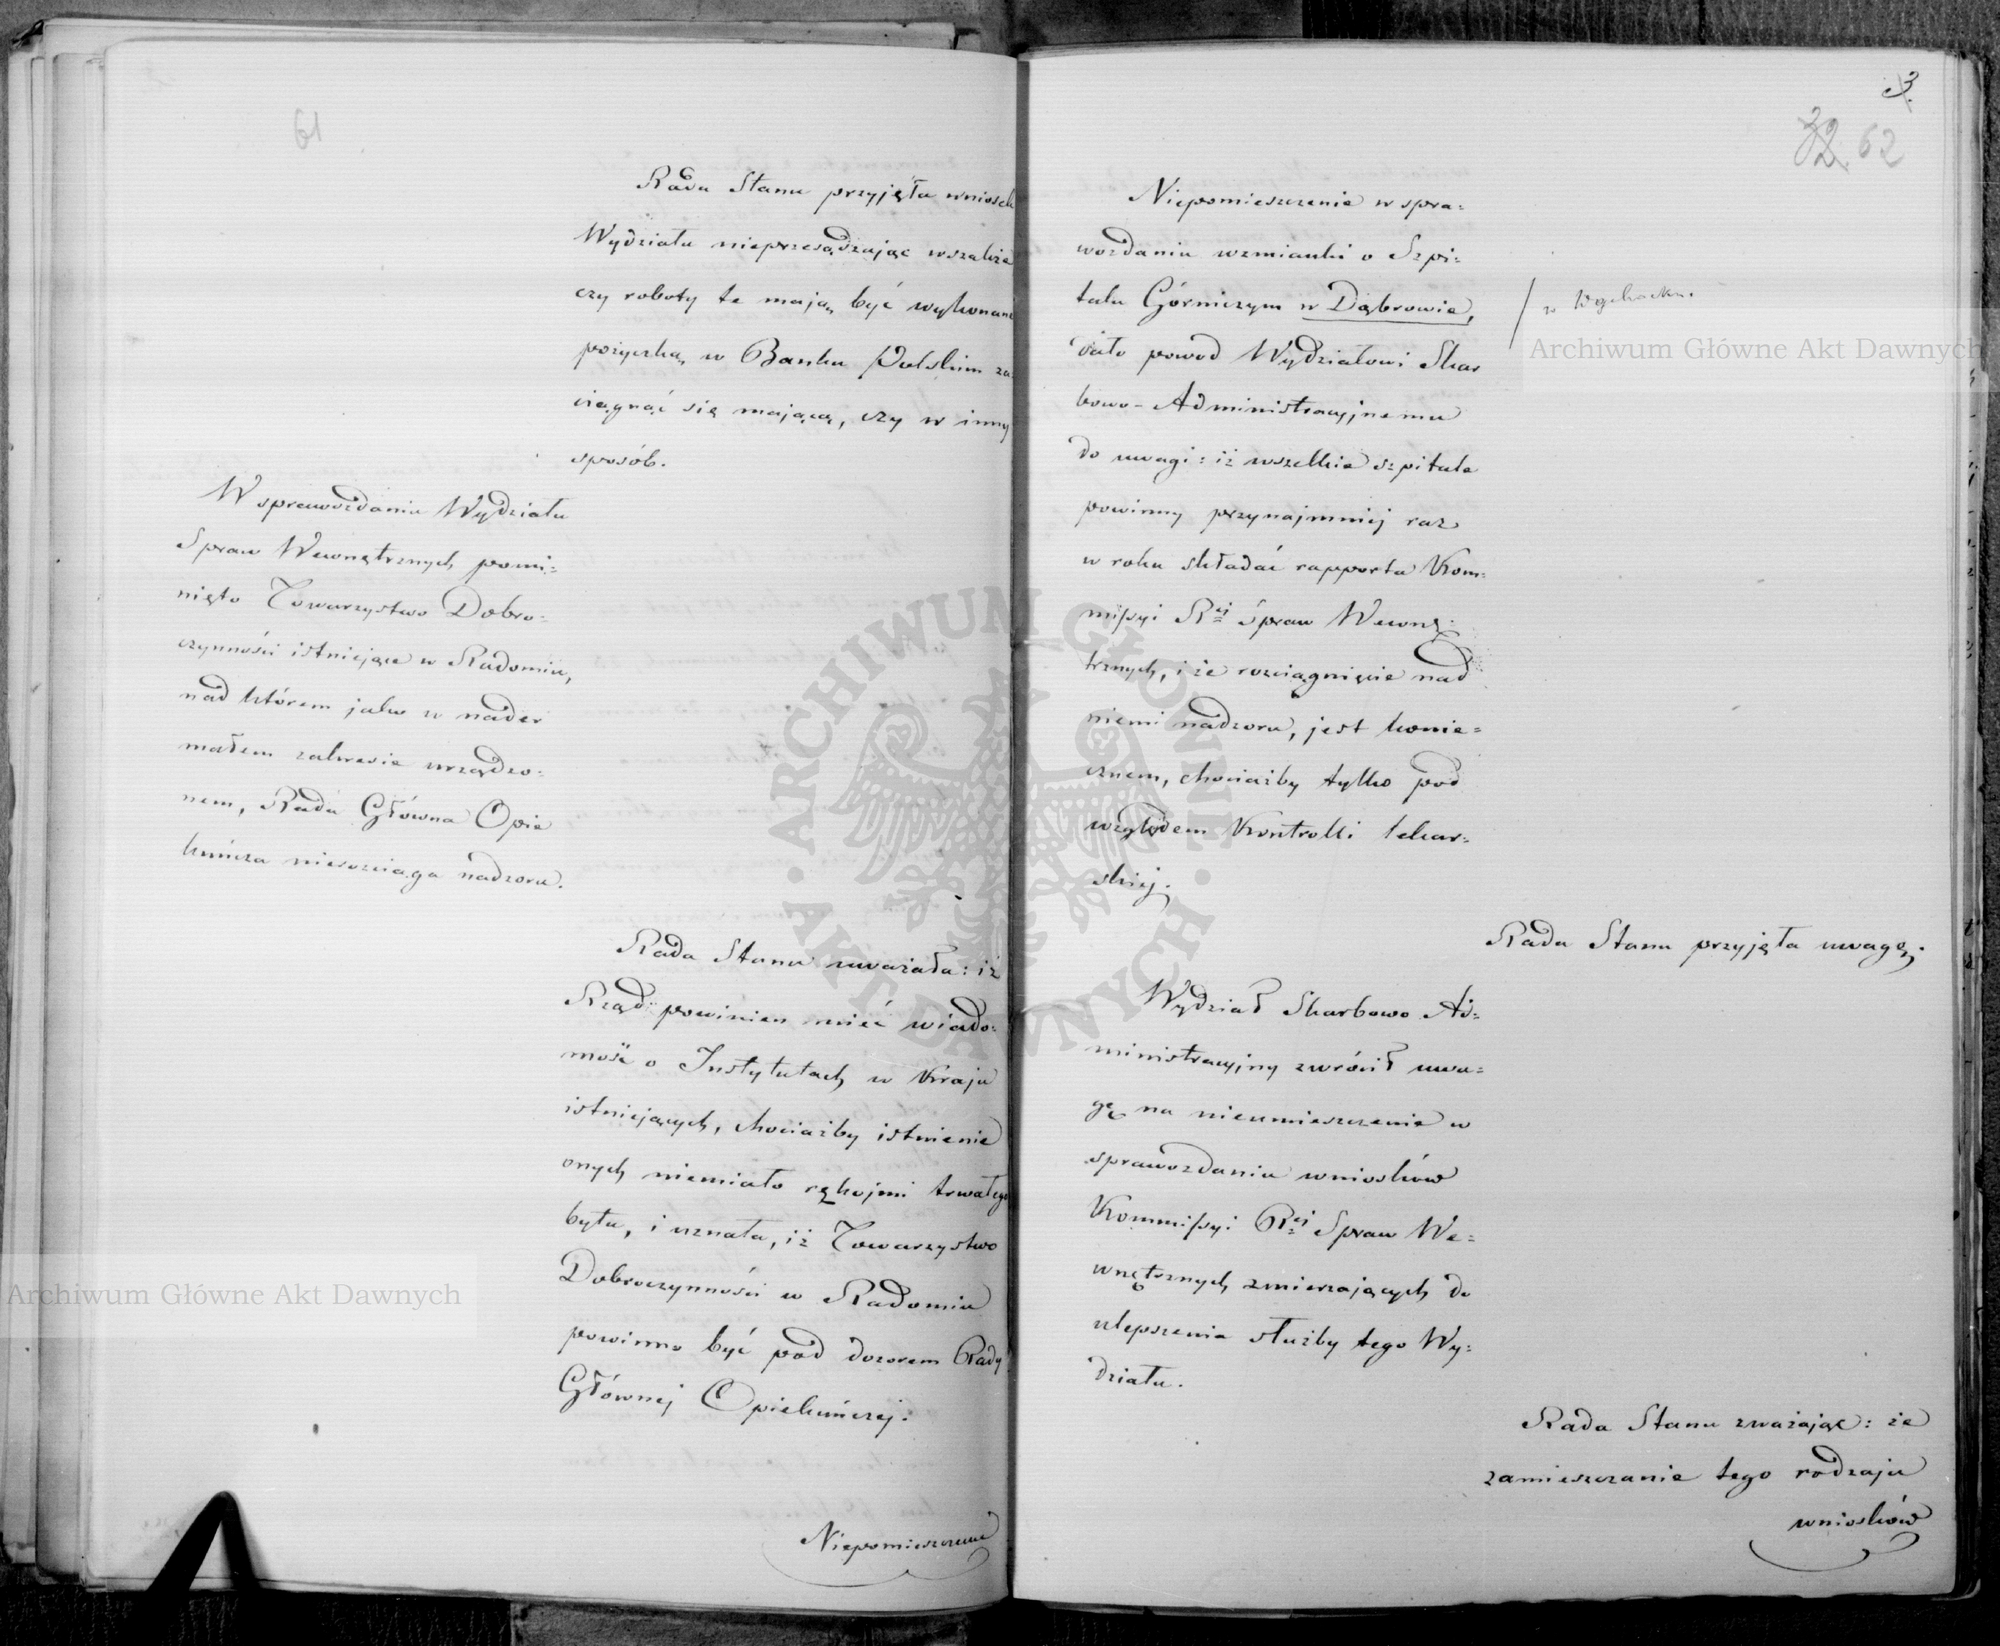 61
Rada Stanu przyjęła wniosek
Wydziału nieprzesądzając wszakże
czy roboty te mają być wykonane
pożyczką w Banku Polskim za-
ciągnąć się mającą, czy w inny
sposób.
W sprawozdaniu Wydziału
Spraw Wewnętrznych pomi=
nięto Towarzystwo Dobro=
czynności istniejące w Radomiu,
nad którem jako w nader
małem zakresie urządzo=
nem, Rada Główna Opie
kuńcza nierozciąga nadzoru.
Rada Stanu uważała: iż
Rząd powinien mieć wiado=
mość o Instytutach w Kraju
istniejących, chociażby istnienie
onych niemiało rękojmi trwałego
bytu, i uznała, iż Towarzystwo
Dobroczynności w Radomiu
powinno być pod dozorem Rady
Głównej Opiekuńczej.
Niepomieszczenie
3.
32. 62
Niepomieszczenie w spra=
wozdaniu wzmianki o Szpi=
talu Górniczym w Dąbrowie,
w Wąchocku.
dało powód Wydziałowi Skar
bowo-Administracyjnemu
do uwagi: iż wszelkie szpitale
powinny przynajmniej raz
w roku składać rapporta Kom=
missyi Rej Spraw Wewnę=
trznych, i że rozciągnięcie nad
niemi nadzoru, jest konie=
cznem, chociażby tylko pod
względem Kontrolli lekar=
skiej.
Rada Stanu przyjęła uwagę.
Wydział Skarbowo Ad=
ministracyjny zwrócił uwa=
gę na nieumieszczenie w
sprawozdaniu wniosków
Kommissyi Rej Spraw We=
wnętrznych zmierzających do
ulepszenia służby tego Wy=
działu.
Rada Stanu zważając: że
zamieszczanie tego rodzaju
wniosków
Archiwum Główne Akt Dawnych
Archiwum Główne Akt Dawnych
ARCHIWUM GŁÓWNE · AKT DAWNYCH ·